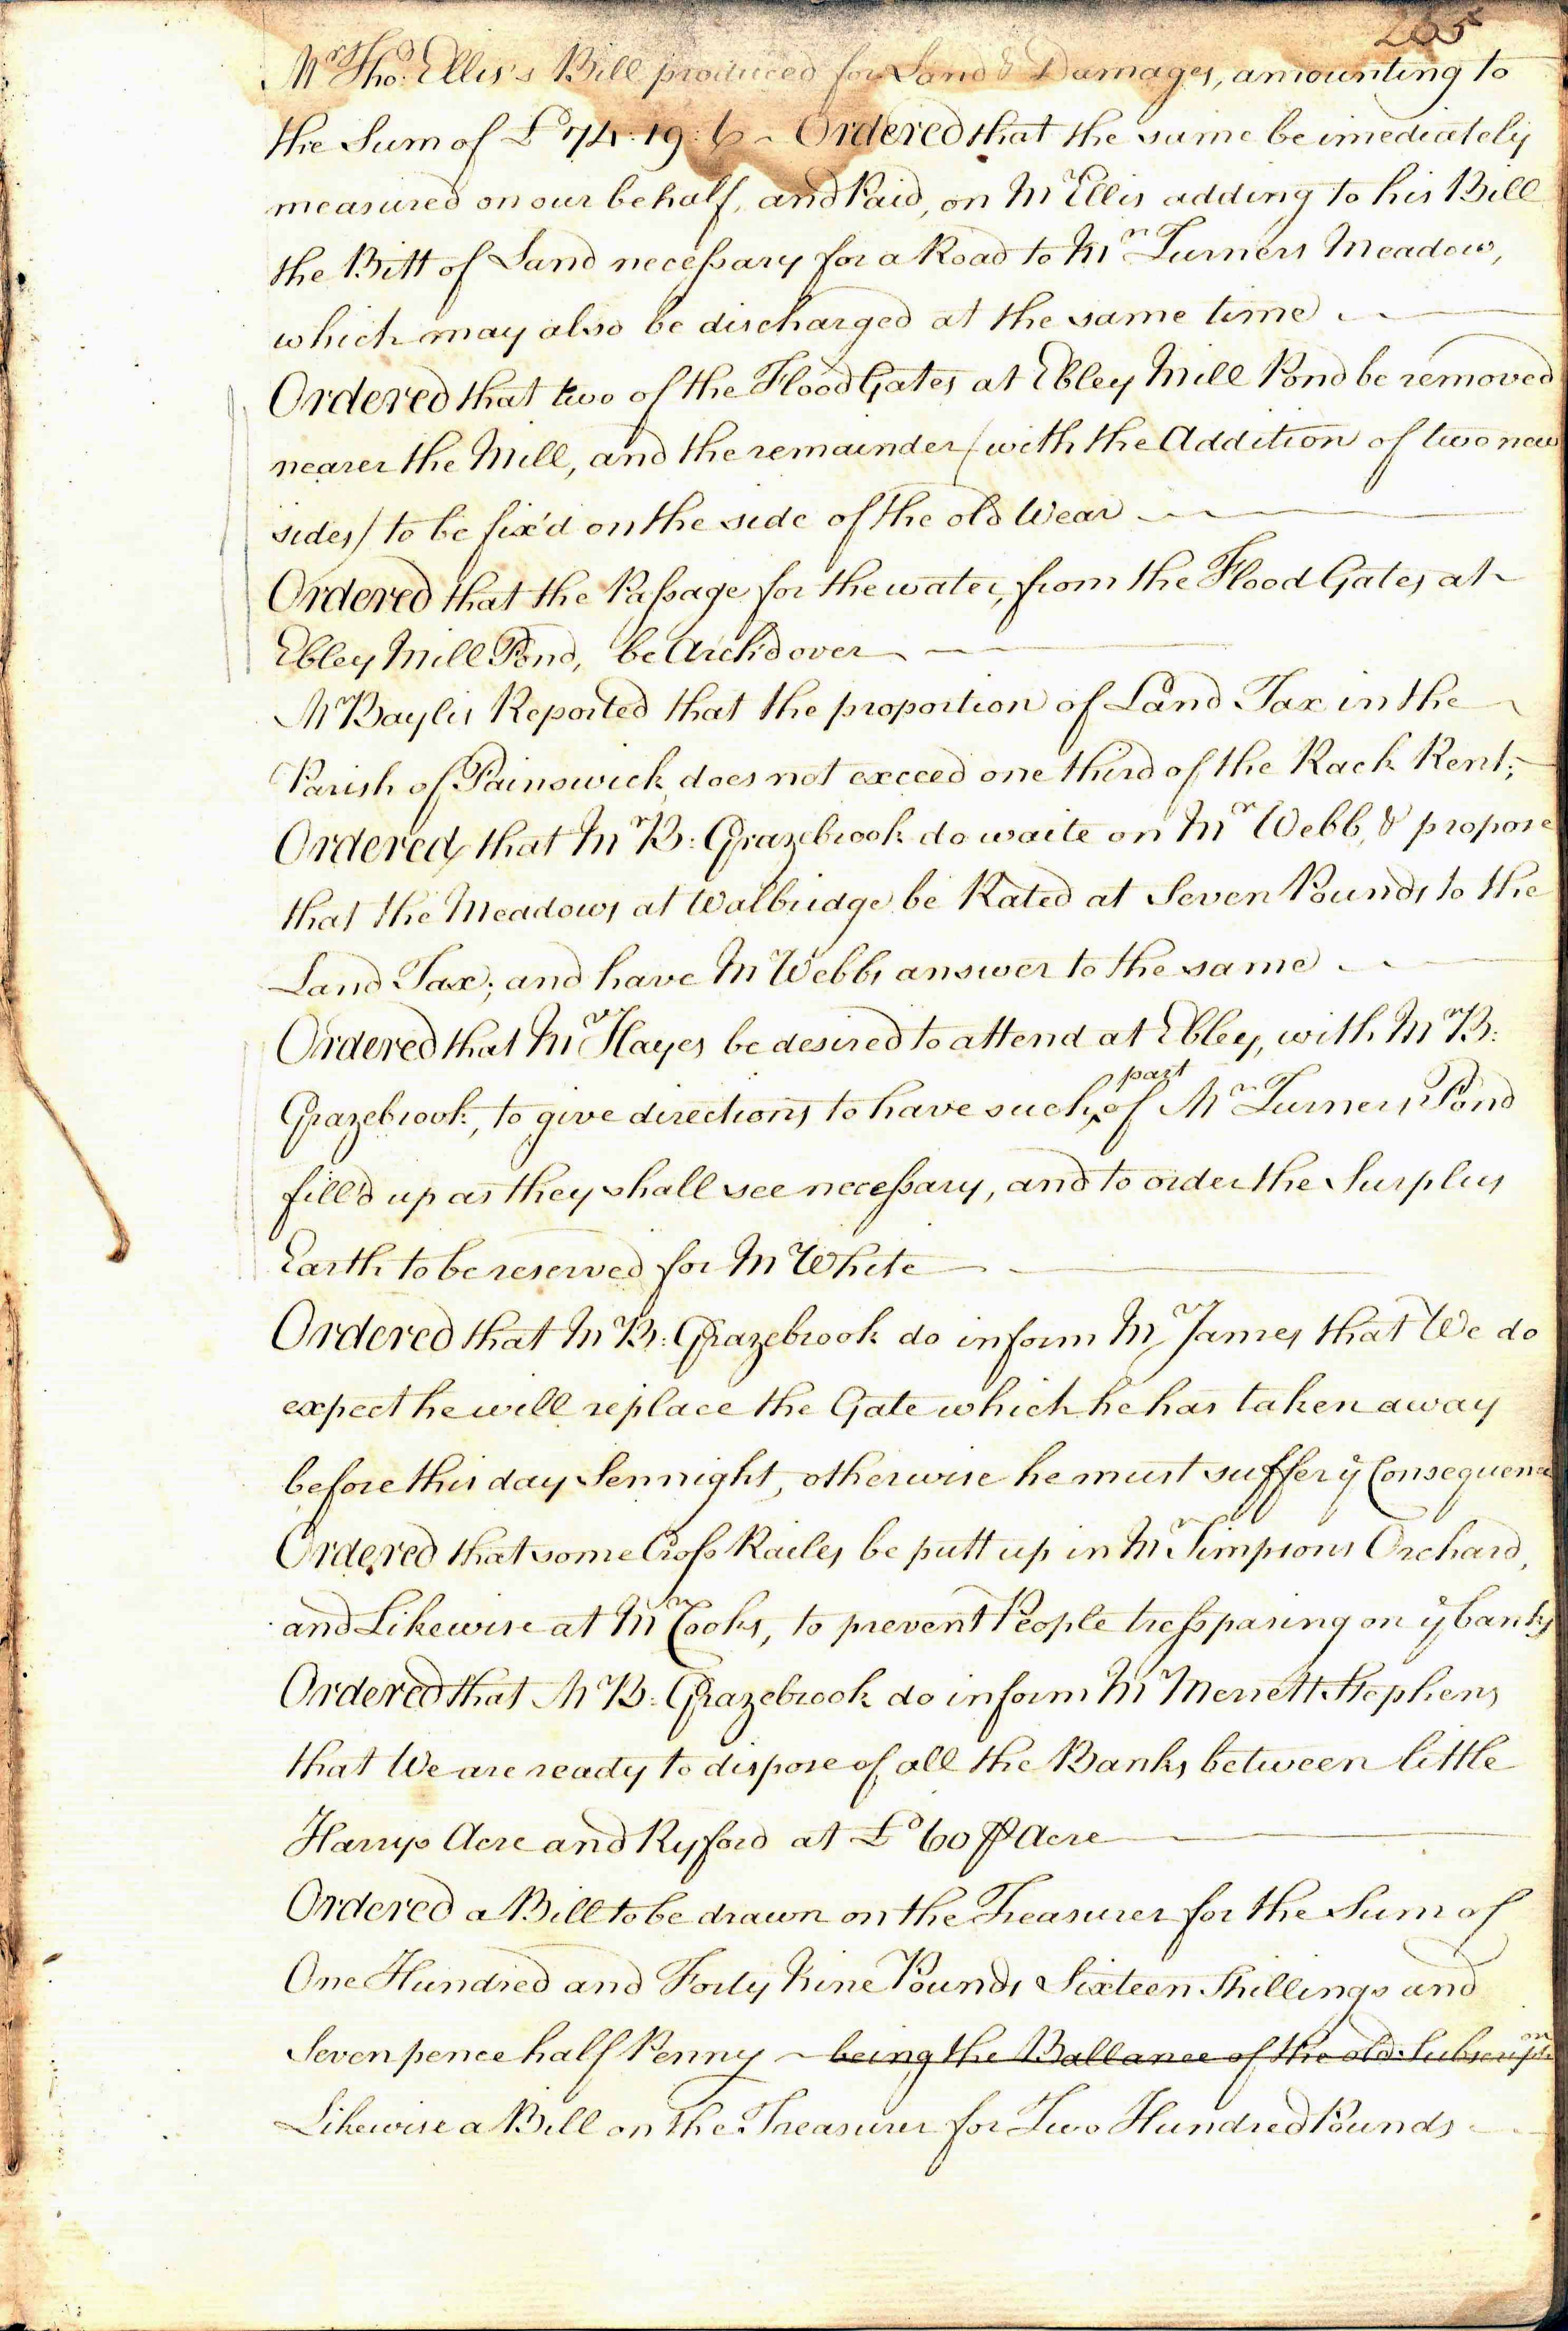 265
Mr Thos: Ellis's Bill produced for Land & Damages, amounting to
the Sum of £ 74: 19: 6 ~ Ordered that the same be imediately
measured on our behalf, and Paid, on Mr Ellis adding to his Bill
the Bitt of Land necessary for a Road to Mr Turners Meadow,
which may also be discharged at the same time
Ordered that two of the Flood Gates at Ebley Mill Pond be removed
nearer the Mill, and the remainder (with the Addition of two new
sides) to be fix'd on the side of the old Wear
Ordered that the Passage for the water, from the Flood Gates at
Ebley Mill Pond, be Arch'd over
Mr Baylis Reported that the proportion of Land Tax in the
Parish of Painswick does not exceed one third of the Rack Rent;
Ordered, that Mr B: Grazebrook do waite on Mr Webb, & propose
that the Meadows at Walbridge be Rated at Seven Pounds to the
Land Tax; and have Mr Webbs answer to the same
Ordered that Mr Hayes be desired to attend at Ebley, with Mr B:
Grazebrook, to give directions to have such part of Mr Turners Pond
fill'd up as they shall see necessary, and to order the Surplus
Earth to be reserved for Mr White
Ordered that Mr B: Grazebrook do inform Mr James that We do
expect he will replace the Gate which he has taken away
before this day Sennight, otherwise he must suffer ye Consequence
Ordered that some Cross Railes be putt up in Mr Simpsons Orchard,
and Likewise at Mr Cooks, to prevent People tresspasing on ye banks
Ordered that Mr B: Grazebrook do inform Mr Merrett Stephens
that We are ready to dispose of all the Banks between little
Harrys Acre and Ryford at £ 60 ⅌ Acre
Ordered a Bill to be drawn on the Treasurer for the Sum of
One Hundred and Forty Nine Pounds Sixteen Shillings and
Seven pence half Penny ~ being the Ballance of the old Subscription
Likewise a Bill on the Treasurer for Two Hundred Pounds